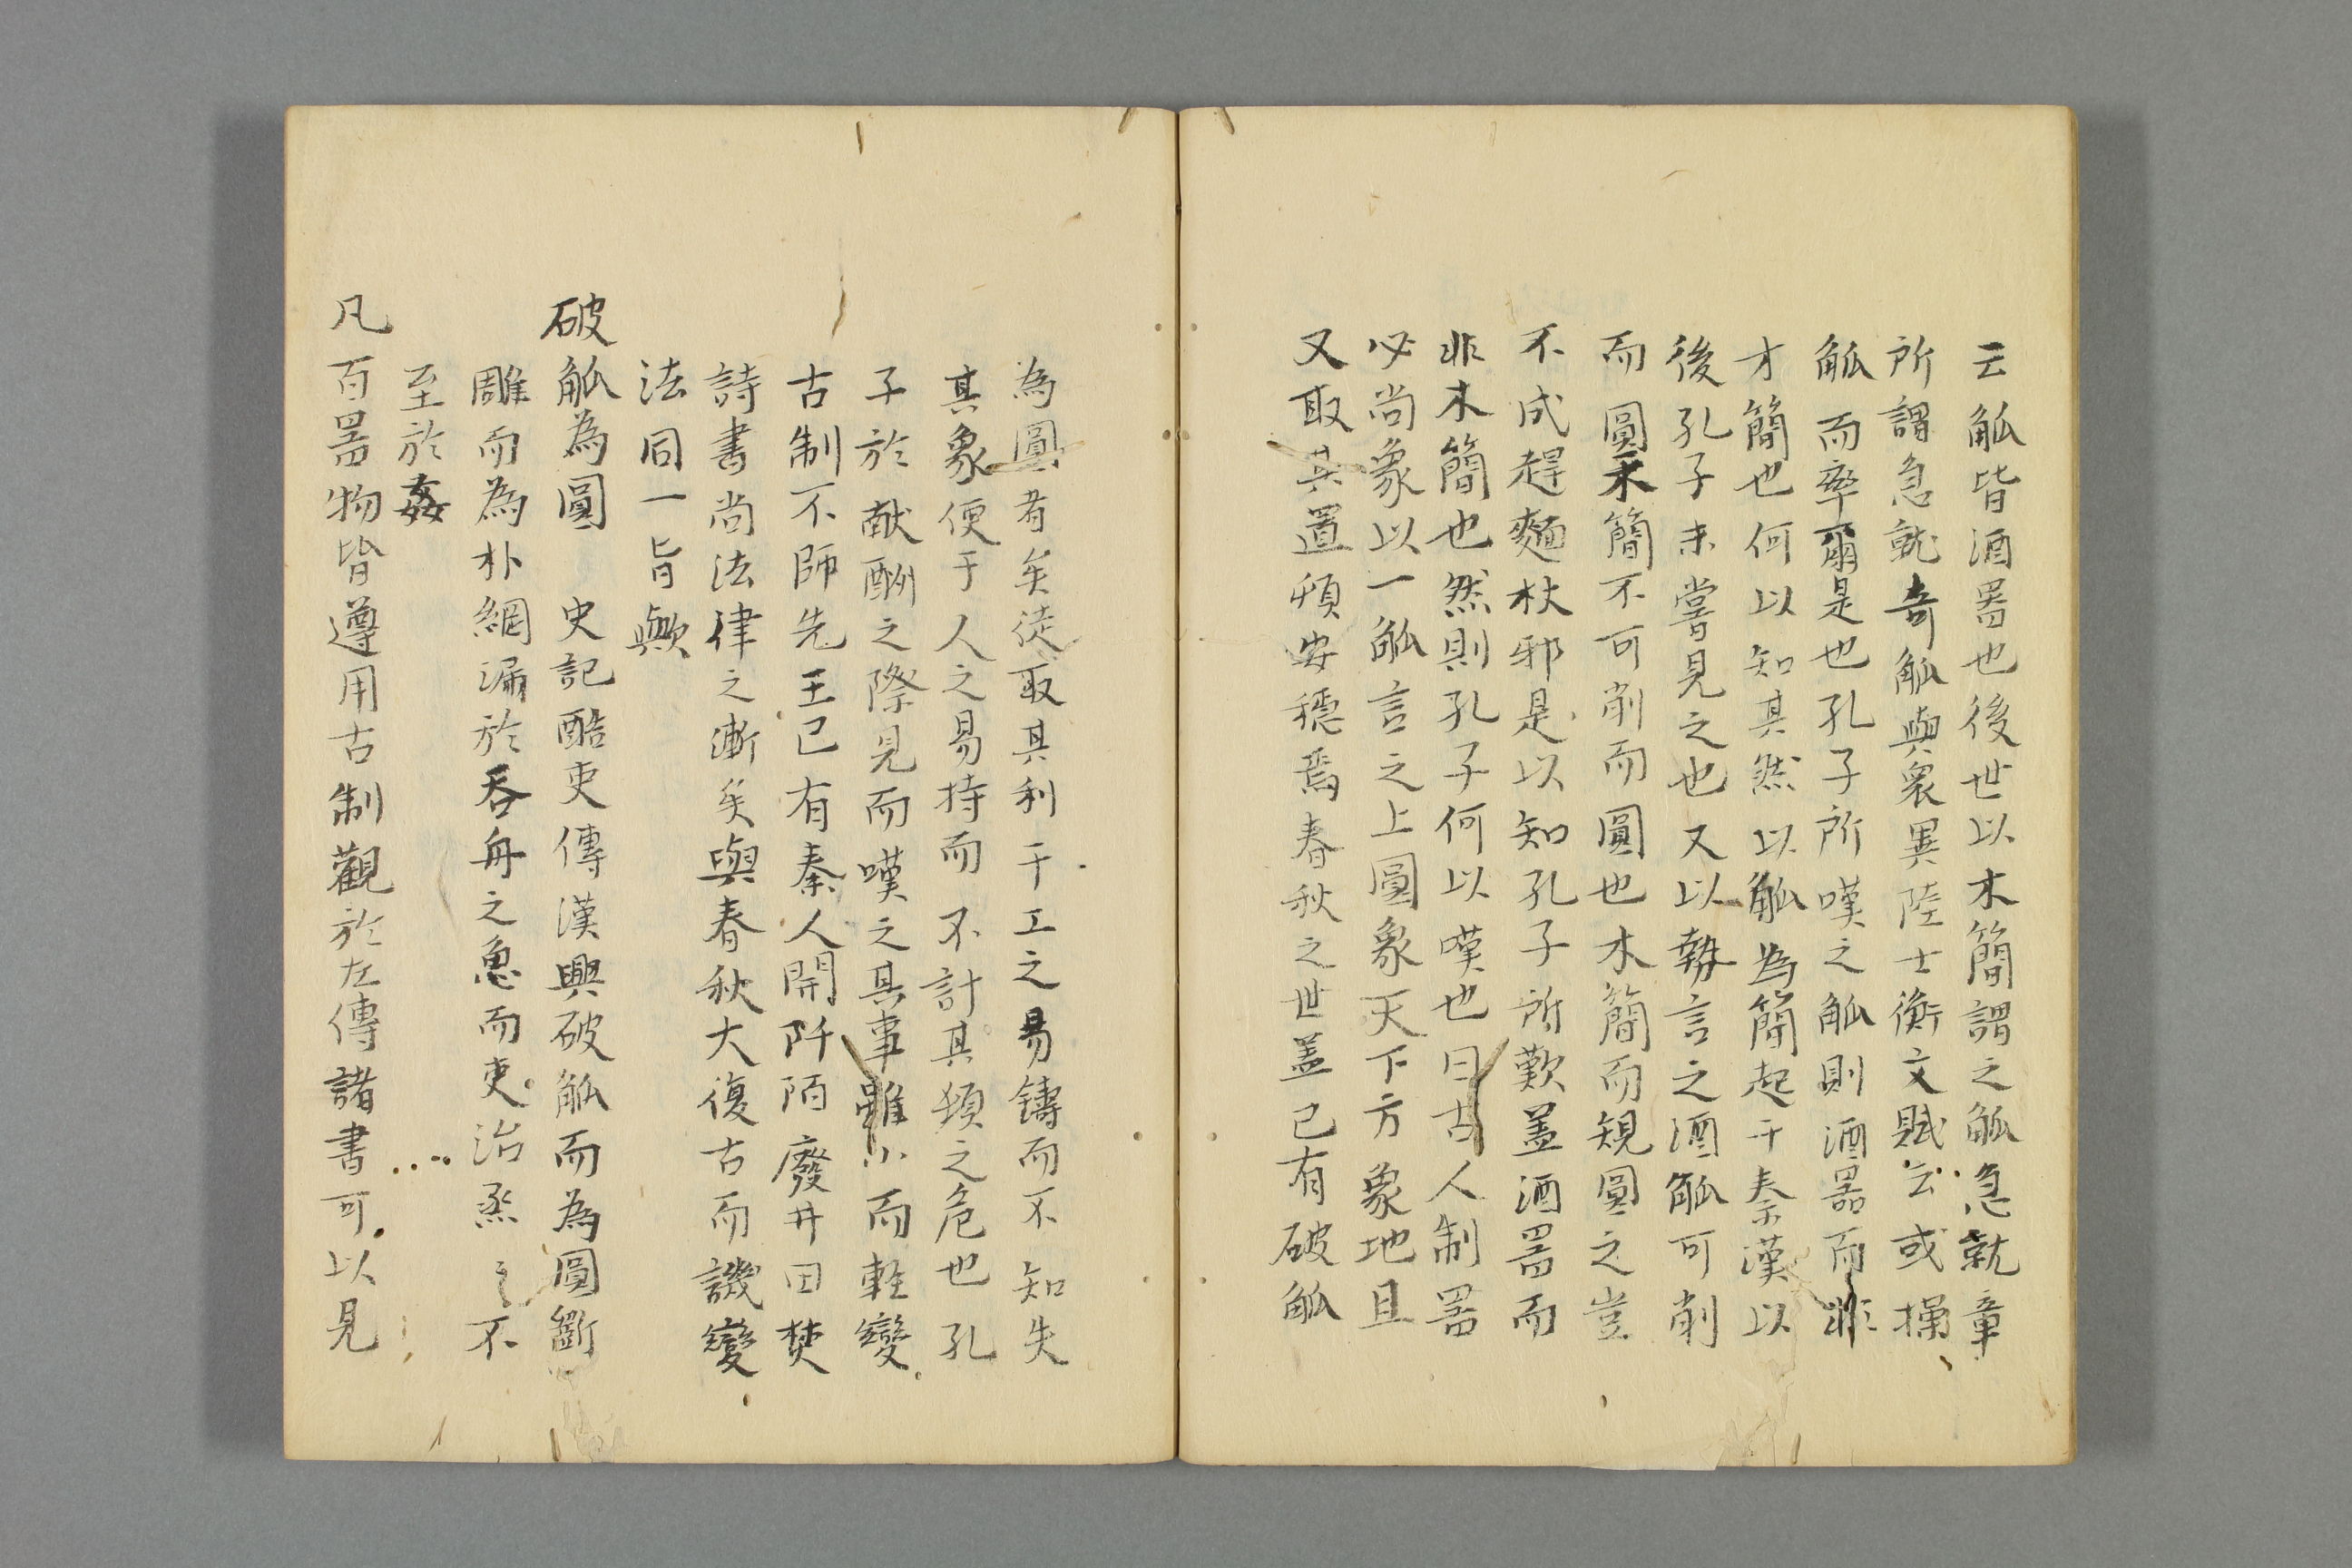 云觚皆酒器也後世以木簡謂之觚急就章
所謂急就奇觚與衆異陸士衡文賦云或操
觚而率爾是也孔子所嘆之觚則酒器而非
才簡也何以知其然以觚為簡起于秦漢以
後孔子未嘗見之也又以勢言之酒觚可削
而圓木簡不可削而圓也木簡而規圓之豈
不成趕麵杖邪是以知孔子所歎蓋酒器而
非木簡也然則孔子何以嘆也曰古人制器
必尚象以一觚言之上圓象天下方象地且
又取其置頓安穩焉春秋之世蓋已有破觚
為圓者矣徒取其利于工之易鑄而不知失
其象便于人之易持而不計其頽之危也孔
子於献酬之際見而嘆之其事雖小而輕變
古制不師先王已有秦人開阡陌廢井田焚
詩書尚法律之漸矣與春秋大復古而譏變
法同一旨歟
破觚為圓　史記酷吏傳漢興破觚而為圓斵
雕而為朴網漏於吞舟之魚而吏治烝〻不
至於姦
凡百器物皆遵用古制觀於左傳諸書可以見